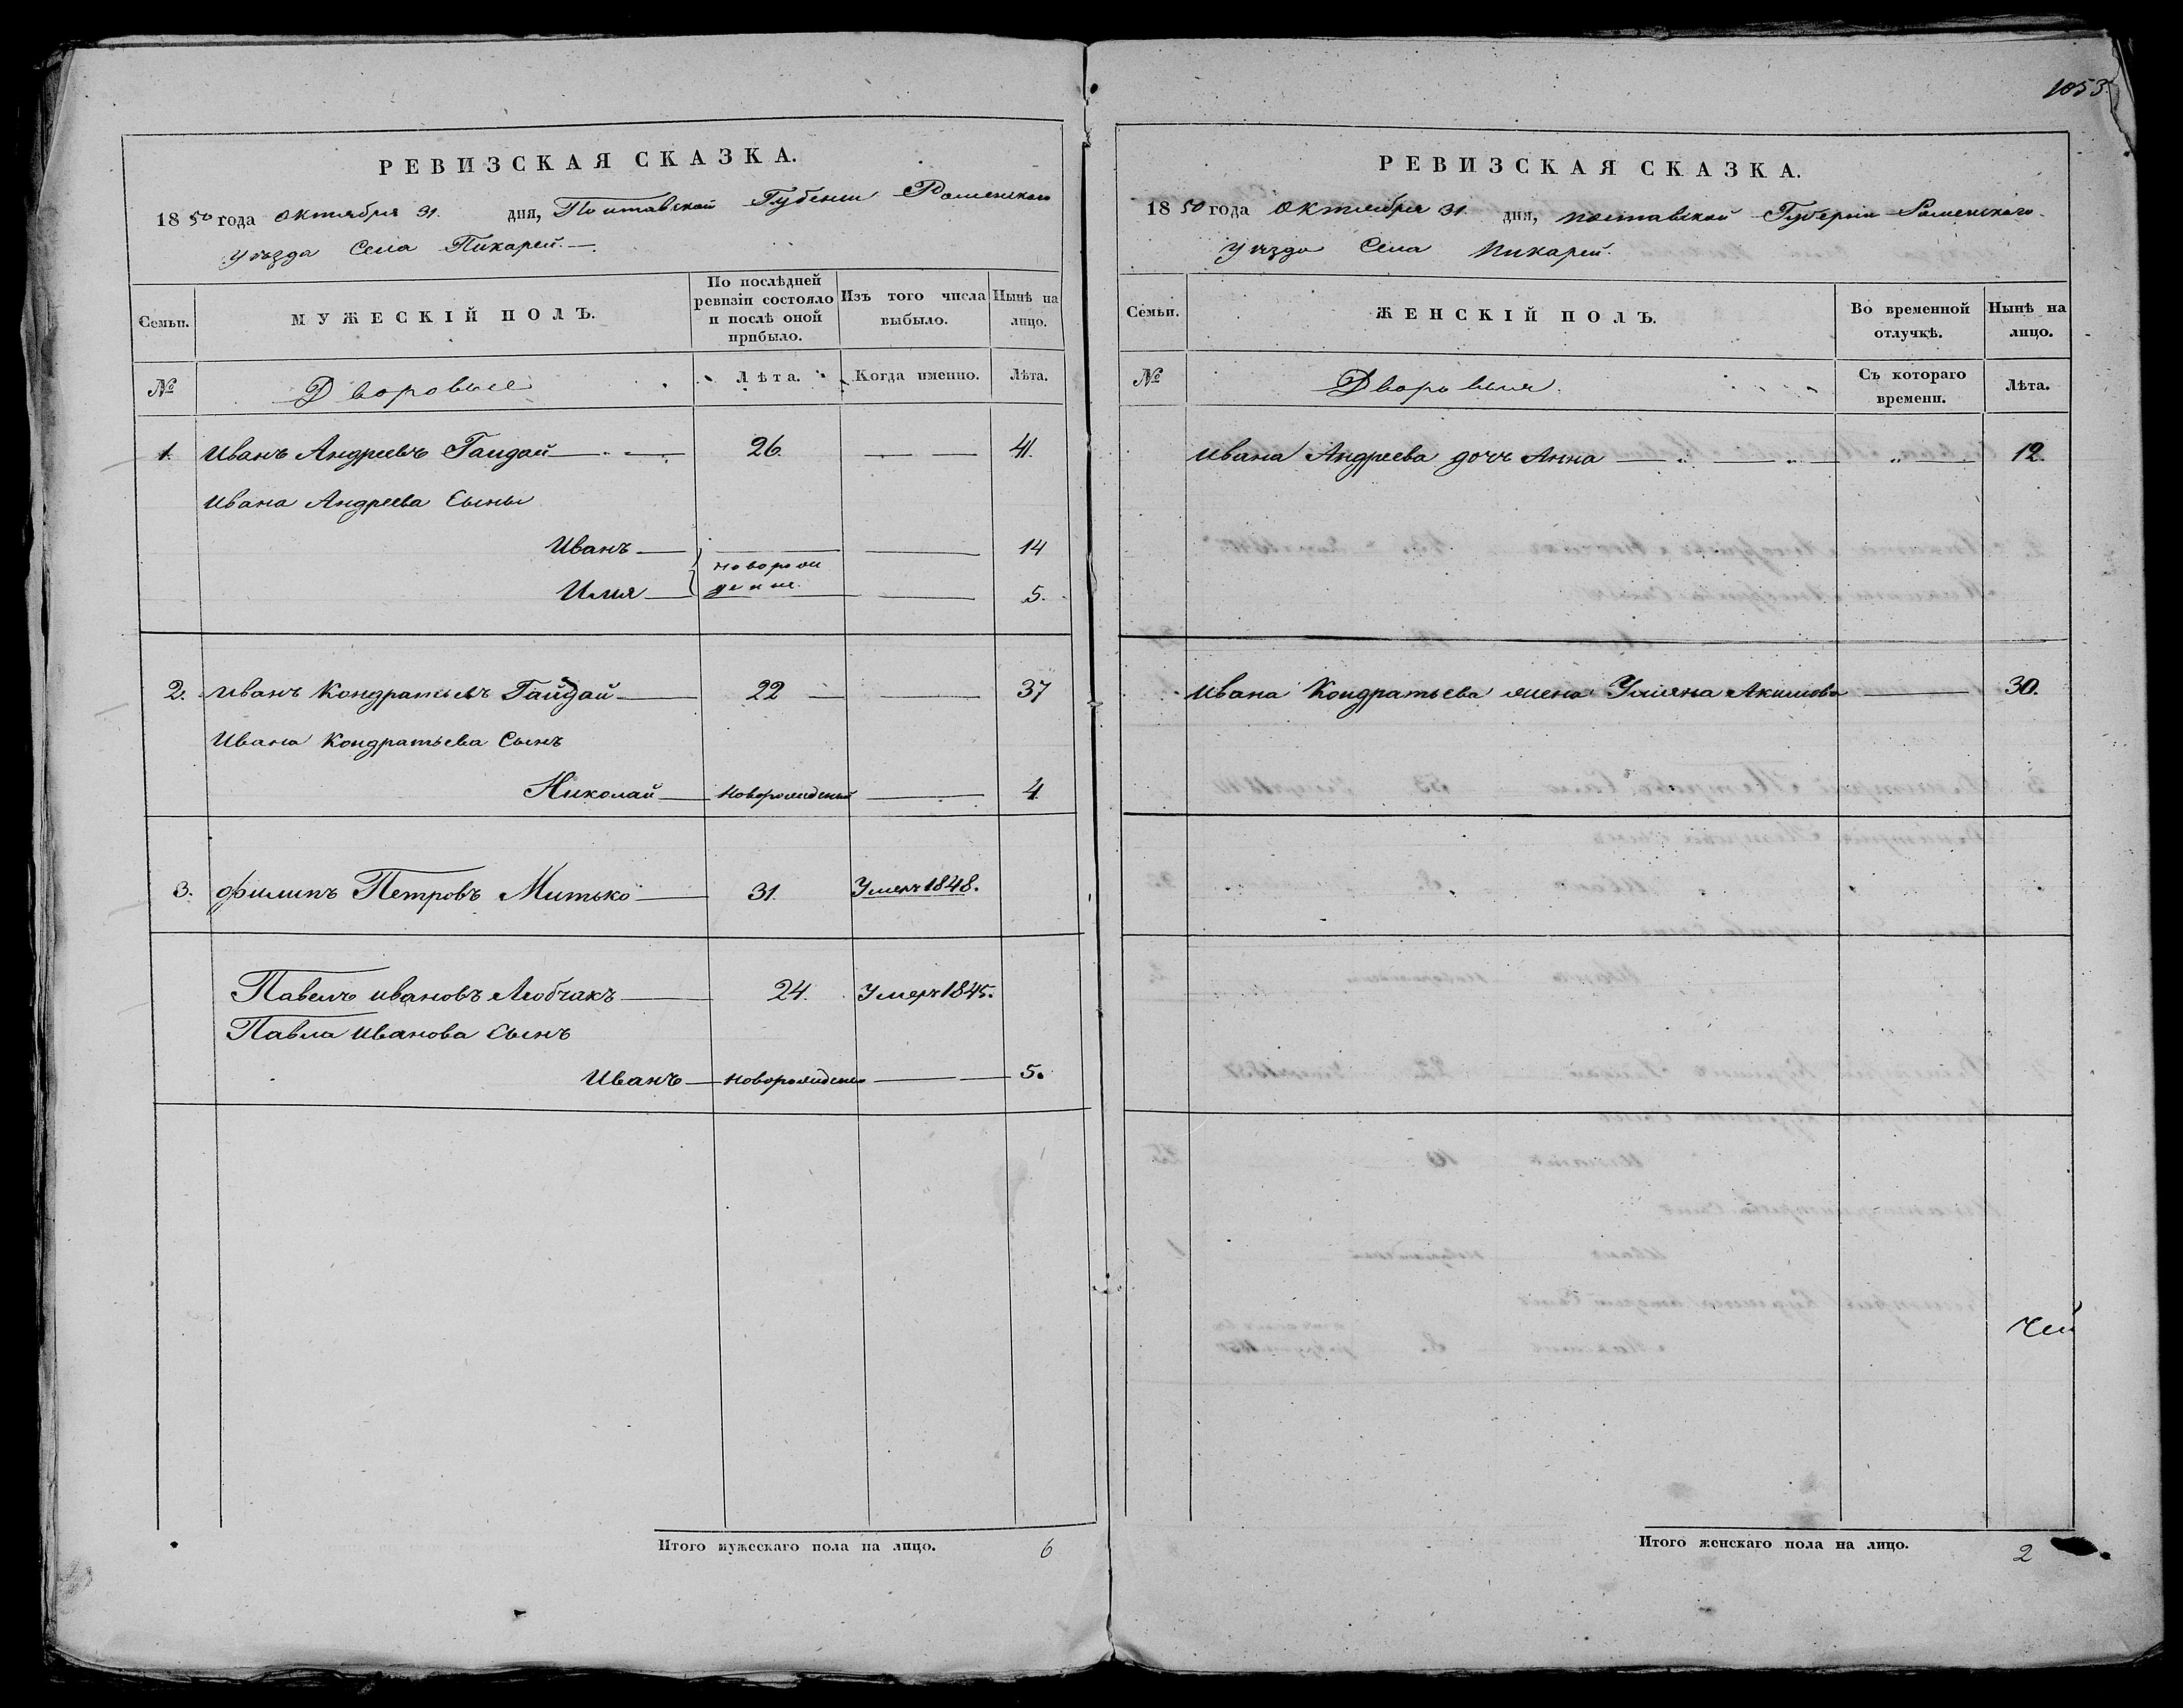 1053.
РЕВИЗСКАЯ СКАЗКА.
1850 года Октября 31. дня, Полтавской Губеніи Роменскаго
уѣзда Села Пикарей.
Семьи. МУЖЕСКІЙ ПОЛЪ. По послѣдней ревизіи состояло и послѣ оной прибыло. Изъ того числа выбыло. Нынѣ на лицо.
№ Дворовые Лѣта. Когда именно. Лѣта.
1. Иванъ Андреевъ Гайдай 26. 41.
Ивана Андреева Сыны
Иванъ новорож 14
Илья денные. 5.
2. Иванъ Кондратьевъ Гайдай 22 37
Ивана Кондратьева Сынъ
Николай новорожденый 4
3. Филипъ Петровъ Митько 31. Умеръ 1848.
Павелъ Ивановъ Любчакъ 24. Умеръ 1845.
Павла Иванова Сынъ
Иванъ новорожденъ 5.
Итого мужескаго пола на лицо. 6
РЕВИЗСКАЯ СКАЗКА.
1850 года Октября 31. дня, Полтавской Губерніи Роменскаго
уѣзда Села Пикарей.
Семьи. ЖЕНСКІЙ ПОЛЪ. Во временной отлучкѣ. Нынѣ на лицо.
№ Дворовыя. Съ котораго времени. Лѣта.
Ивана Андреева дочь Анна 12.
Ивана Кондратьева жена Ульяна Акимова 30.
Итого женскаго пола на лицо. 2